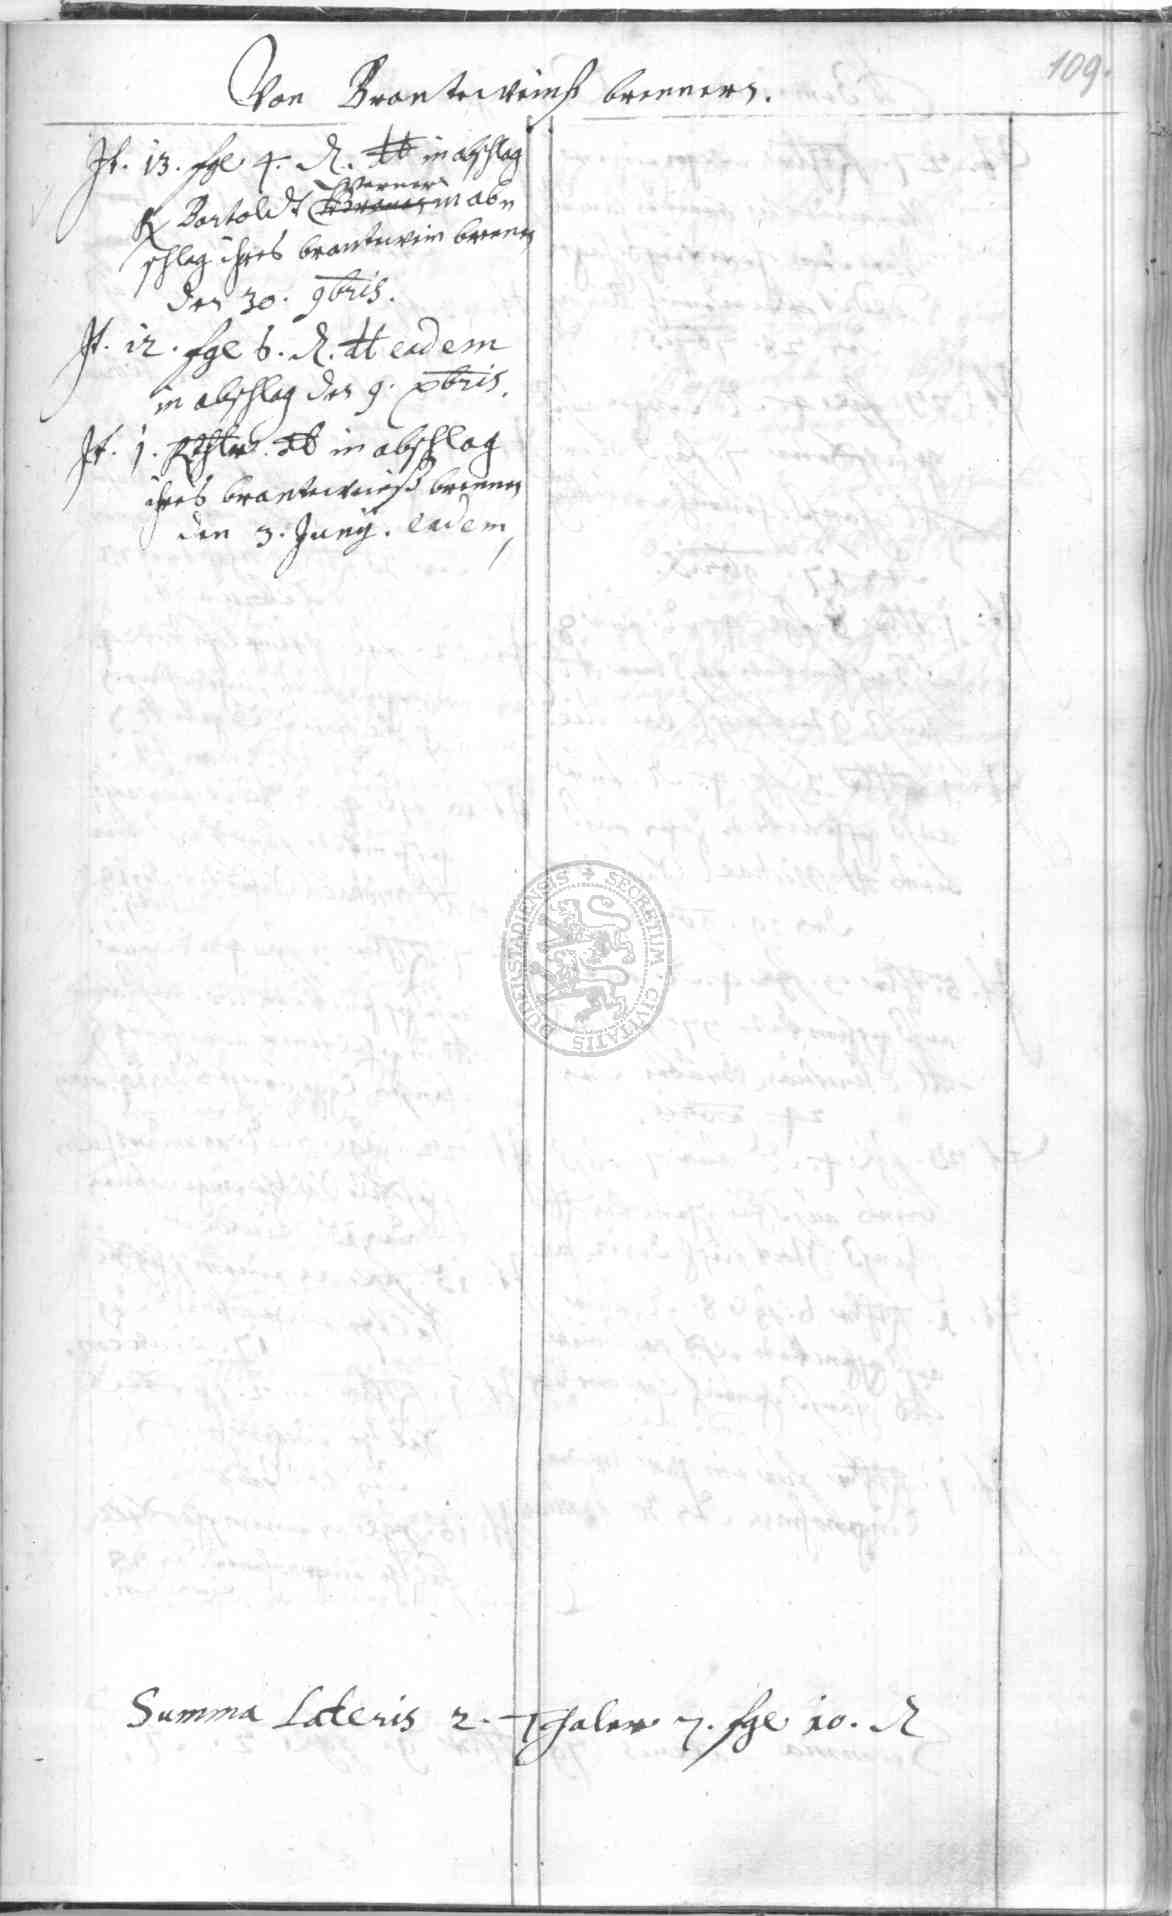 109.
Von Branteweinß brennern.
It. 13. sgl 4. ₰. dt in abschlag
Bartoldt Werners in abn
schlag ihres brantewein brenn
den 30. 9bris.
It. 12. sgl 6. ₰. dt eadem
in abschlag den 9. xbris.
It. 1. Rthlr. dt in abschlag
ihres branteweinß brennen
den 3. Junij. eadem,
SECRETUM CIVITATIS DUDERSTADIENSIS
Summa Lateris 2. Thaler 7. sgl 10. ₰